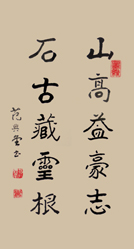 山高益豪志
石古藏靈根
范興堂书